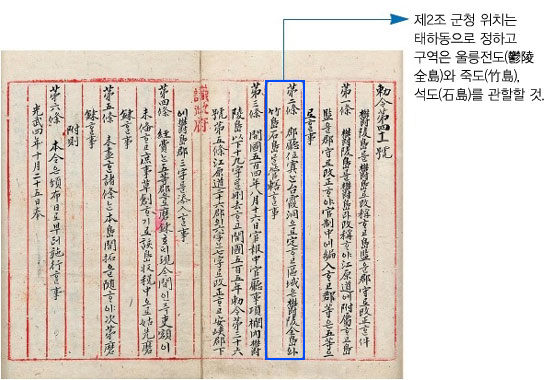 제2조 군청 위치는
태하동으로 정하고
구역은 울릉전도(鬱陵
全島)와 죽도(竹島),
석도(石島)를 관할할 것.
勅令第四十一號
鬱陵島를鬱島로改稱ᄒᆞ고島監을郡守로改正ᄒᆞᆫ件
第一條 鬱陵島를鬱島라改稱ᄒᆞ야江原道에附屬ᄒᆞ고島
監을郡守로改正ᄒᆞ야官制中에編入ᄒᆞ고郡等은五等으
로ᄒᆞᆯ事
第二條 郡廳位寘ᄂᆞᆫ台霞洞으로定ᄒᆞ고區域은鬱陵全島와
竹島石島를管轄ᄒᆞᆯ事
第三條 開國五百四年八月十六日官報中官廳事項欄內鬱
陵島以下十九字를刪去ᄒᆞ고開國五百五年勅令第三十六
號第五條江原道二十六郡의六字ᄂᆞᆫ七字로改正ᄒᆞ고安峽郡下
議政府
에鬱島郡三字를添入ᄒᆞᆯ事
第四條 經費ᄂᆞᆫ五等郡으로磨鍊호ᄃᆡ現今間인즉吏額이
未備ᄒᆞ고庶事草創ᄒᆞ기로該島收稅中으로姑先磨
鍊ᄒᆞᆯ事
第五條 未盡ᄒᆞᆫ諸條ᄂᆞᆫ本島開拓을隨ᄒᆞ야次第磨
鍊ᄒᆞᆯ事
附則
第六條 本令은頒布日로븟터施行ᄒᆞᆯ事
光武四年十月二十五日奉